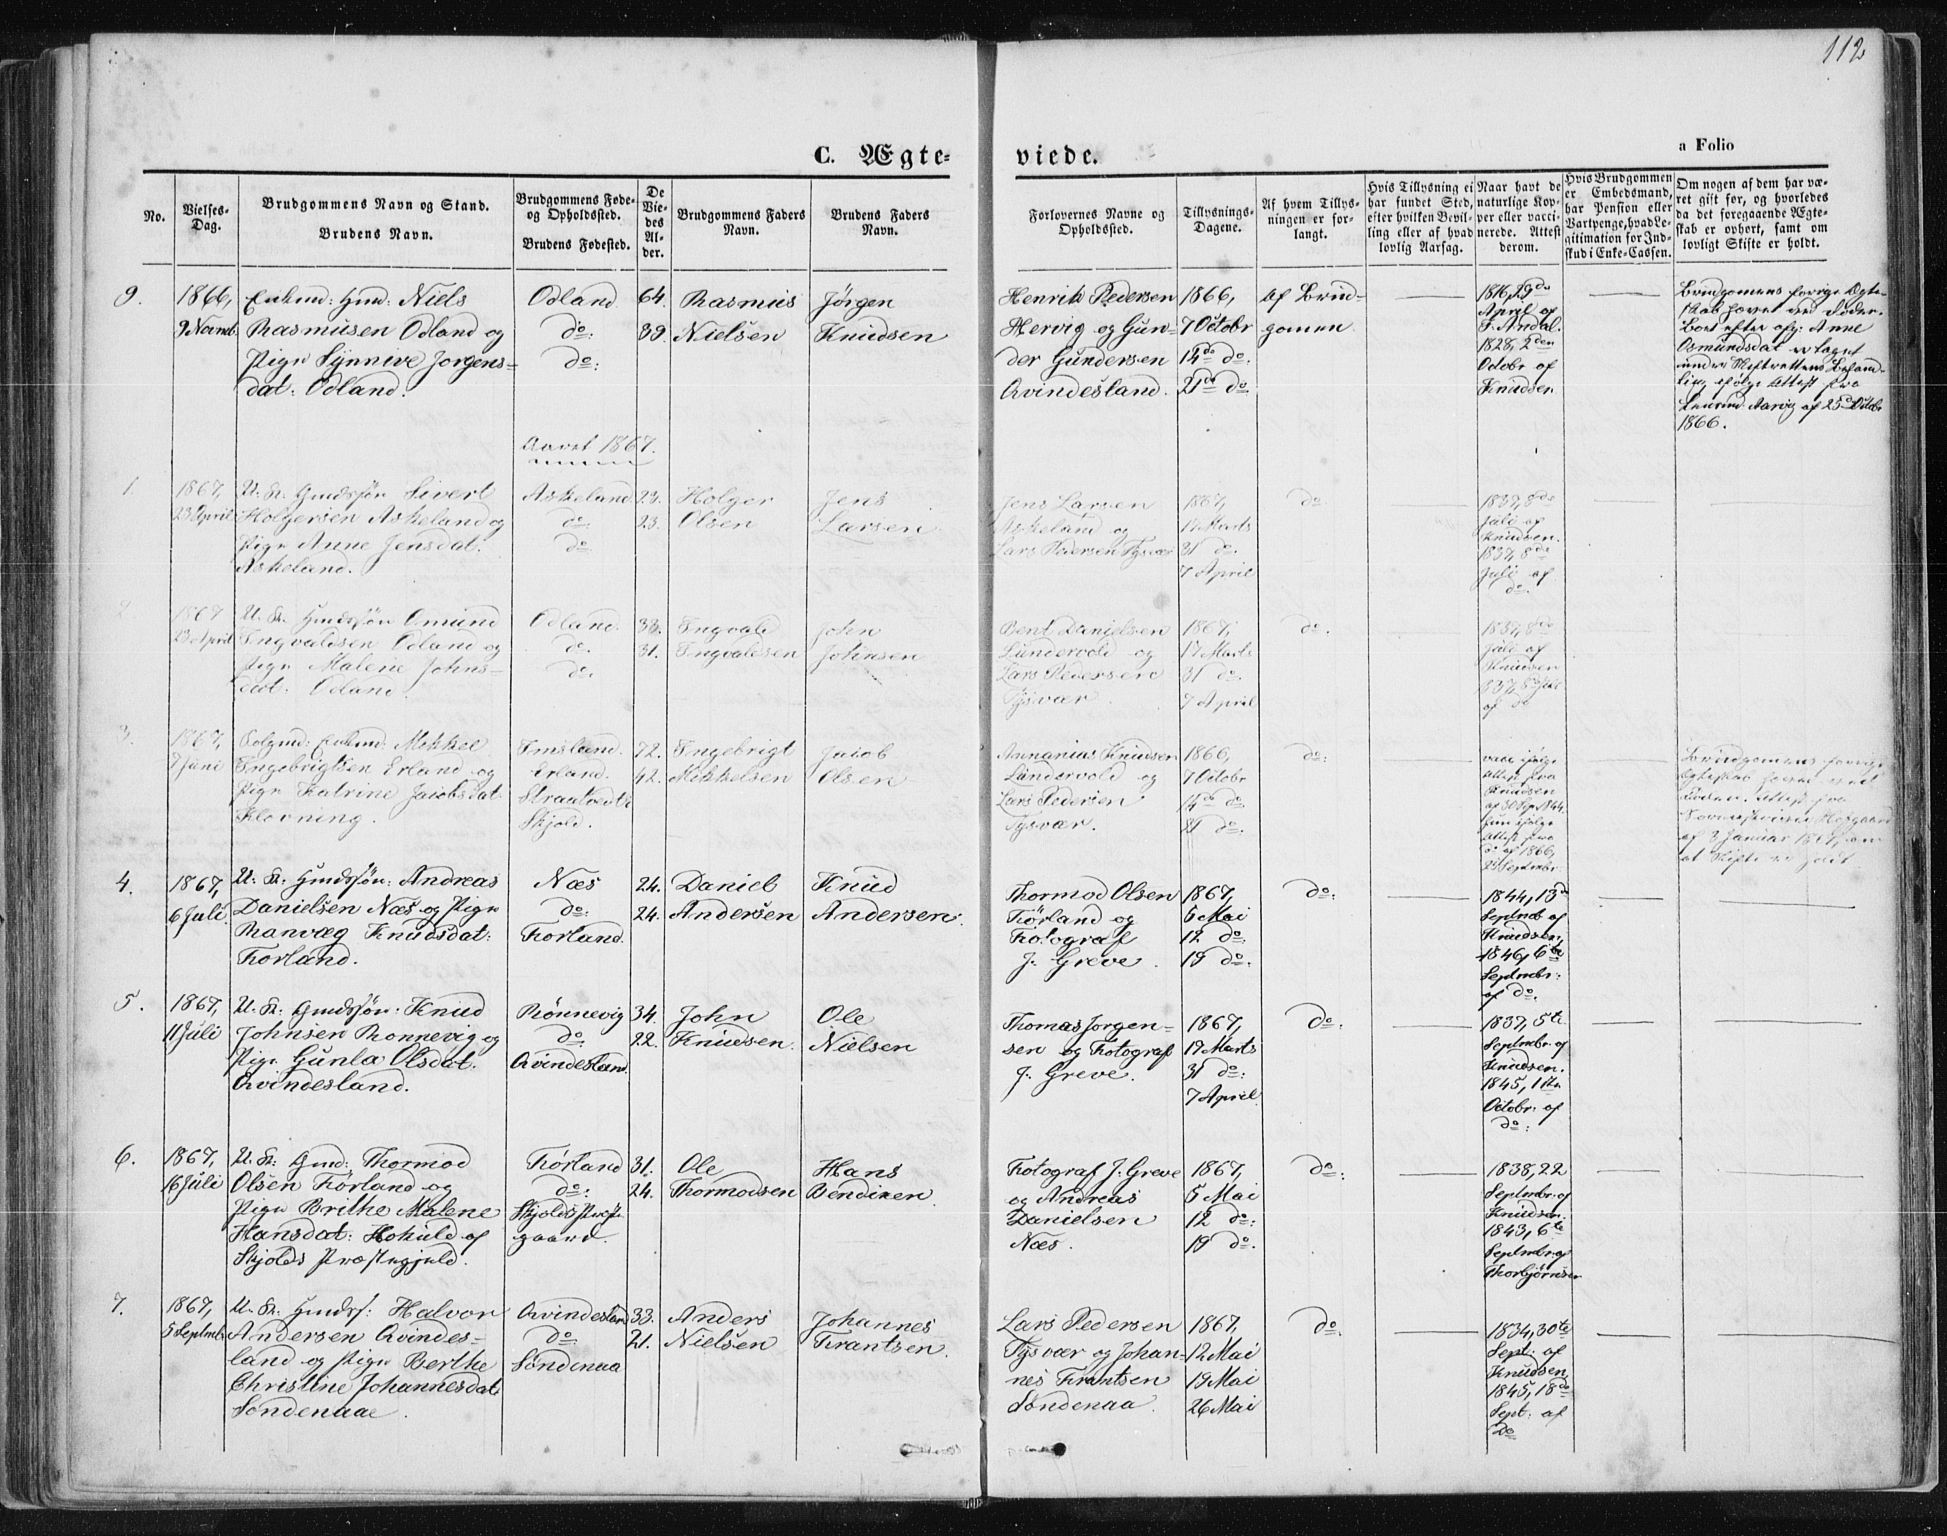 112
C. Ægte-
viede.
a Folio
No.
Vielses-
Dag.
Brudgommens Navn og Stand.
Brudens Navn.
Brudgommens Føde-
og Opholdssted.
Brudens Fødested.
De
Vie-
des
Al-
der.
Brudgommens Faders
Navn.
Brudens Faders
Navn.
Forlovernes Navne og
Opholdssted.
Tillysnings-
Dagene.
Af hvem Tillys-
ningen er for-
langt.
Hvis Tillysning ei
har fundet Sted,
efter hvilken Bevil-
ling eller af hvad
lovlig Aarsag.
Naar havt de
naturlige Kop-
per eller vacci-
nerede. Attest
derom.
Hvis Brudgommen
er Embedsmand,
har Pension eller
Vartpenge, hvad Le-
gitimation for Ind-
skud i Enke-Cassen.
Om nogen af dem har væ-
ret gift før, og hvorledes
da det foregaaende Ægte-
skab er ophørt, samt om
lovligt Skifte er holdt.
9.
1866,
9 Novmb.
Enkmd: Gmd: Niels
Rasmusen Odland og
Pige Synneve Jorgens-
dat: Odland.
Odland
do:
do:
64.
39.
Rasmus
Nielsen
Jörgen
Knudsen
Henrik Pedersen
Hervig og Gun-
der Gundersen
Qvindesland.
1866,
7 Octobr
14de do.
21de do.
Af Brud-
gomen.
1816, 29de
April af
F. Andal.
1828, 2den
Octobr af
Knudsen
Brudgomens forrige Ægte-
skab hævet ved Döden.
Boet efter afg: Anne
Osmundsdat er taget
under Skifterettens Behand-
ling, ifölge Attest fra
Lensmd. Aarvig af 25de Octobr
1866.
Aaret 1867.
1
1867,
23 April
U. K. Gmdssön Sivert
Holgersen Askeland og
Pige Anne Jensdat.
Askeland.
Askeland
do:
do
23.
23.
Holger
Olsen
Jens
Larsen
Jens Larsen
Askeland og
Lars Pedersen Tysvær
1867,
17 Marts
31 do.
7 April
do:
1837, 8de
Juli af
Knudsen.
1837, 8de
Juli af
do:
2
1867
23 April
U. K. Gmdssön Omund
Ingvaldsen Odland og
Pige Malene Johns-
dat: Odland.
Odland.
do.
do:
33.
31.
Ingvald
Ingvaldsen
John
Johnsen
Bent Danielsen
Lundervold og
Lars Pedersen
Tysvær
1867,
17 Marts
31 do.
7 April
do.
1837, 8de
Juli af
Knudsen
1837, 8de Juli
af do
3.
1867,
7 Juni
Folgmd: Enkmd: Mikkel
Ingebrigtsen Erland og
Pige Katrine Jacobsdat
Klovning.
Imsland.
Erland.
Straatvedt
Skjold.
72.
42.
Ingebrigt
Mikkelsen
Jacob
Olsen
Annanias Knudsen
Lundervold og
Lars Pedersen
Tysvær.
1866,
7 Octobr
14de do:
21 do:
do:
vacc ifölge
Attest fra
Knudsen
af 30 Sep. 1844.
hun ifölge
Attest fra
do af 1866,
23 Septembr
Brudgomens forrige
Ægteskab hævet ved
Döden. Attest fra
Sorenskriver Hofgaard
af 3 Januar 1867, om
at Skifte er holdt
4.
1867,
6 Juli
U. K. Gmdssön: Andreas
Danielsen Næs og Pige
Ranvæg Knudsdat:
Førland.
Næs
do:
Førland.
24.
24.
Daniel
Andersen
Knud
Andersen.
Thormod Olsen
Førland og
Fotograf
J. Greve.
1867,
5 Mai
12 do:
19 do:
do:
1844, 13de
Septmb af
Knudsen,
1846, 6te
Septmbr:
af do:
5.
1867,
11 Juli
U. K: Gmdssön: Knud
Johnsen Ronnevig og
Pige Gunla Olsdat.
Qvindesland.
Rönnevig
do:
Qvindesland.
34.
22.
John
Knudsen.
Ole
Nielsen
Thomas Jorgen-
sen og Fotograf
J. Greve.
1867,
17 Marts
31 do:
7 April
do:
1837, 5te
Septmbr. af
Knudsen.
1845, 1ste
Octobr. af
do:
6.
1867,
16 Juli
U. K: Gmd: Thormod
Olsen Førland og
Pige Brithe Malene
Hansdat: Hokuld af
Skjolds Præstegjeld.
Førland
do:
Skjolds Præste-
gaard.
31.
24.
Ole
Thormodsen
Hans
Bendixen.
Fotograf J. Greve
og Andreas
Danielsen
Næs.
1867,
5 Mai
12 do:
19 do.
do:
1838, 22
Septmbr. af
Knudsen.
1843, 6te
Septmbr. af
Thorbjörnsen
7.
1867,
5 Septmb.
U. K. Gmdss: Halvor
Andersen Qvindes-
land og Pige Berthe
Christine Johannesdat
Søndenaae.
Qvindesland
do:
Søndenaa
33.
21.
Anders
Nielsen
Johannes
Frantsen.
Lars Pedersen
Tysvær og Johan-
nes Frantsen
Søndenaa.
1867,
12 Mai
19 Mai
26 Mai
do:
1834, 30te
Sept: af
Knudsen,
1845, 18de
Sept: af
do